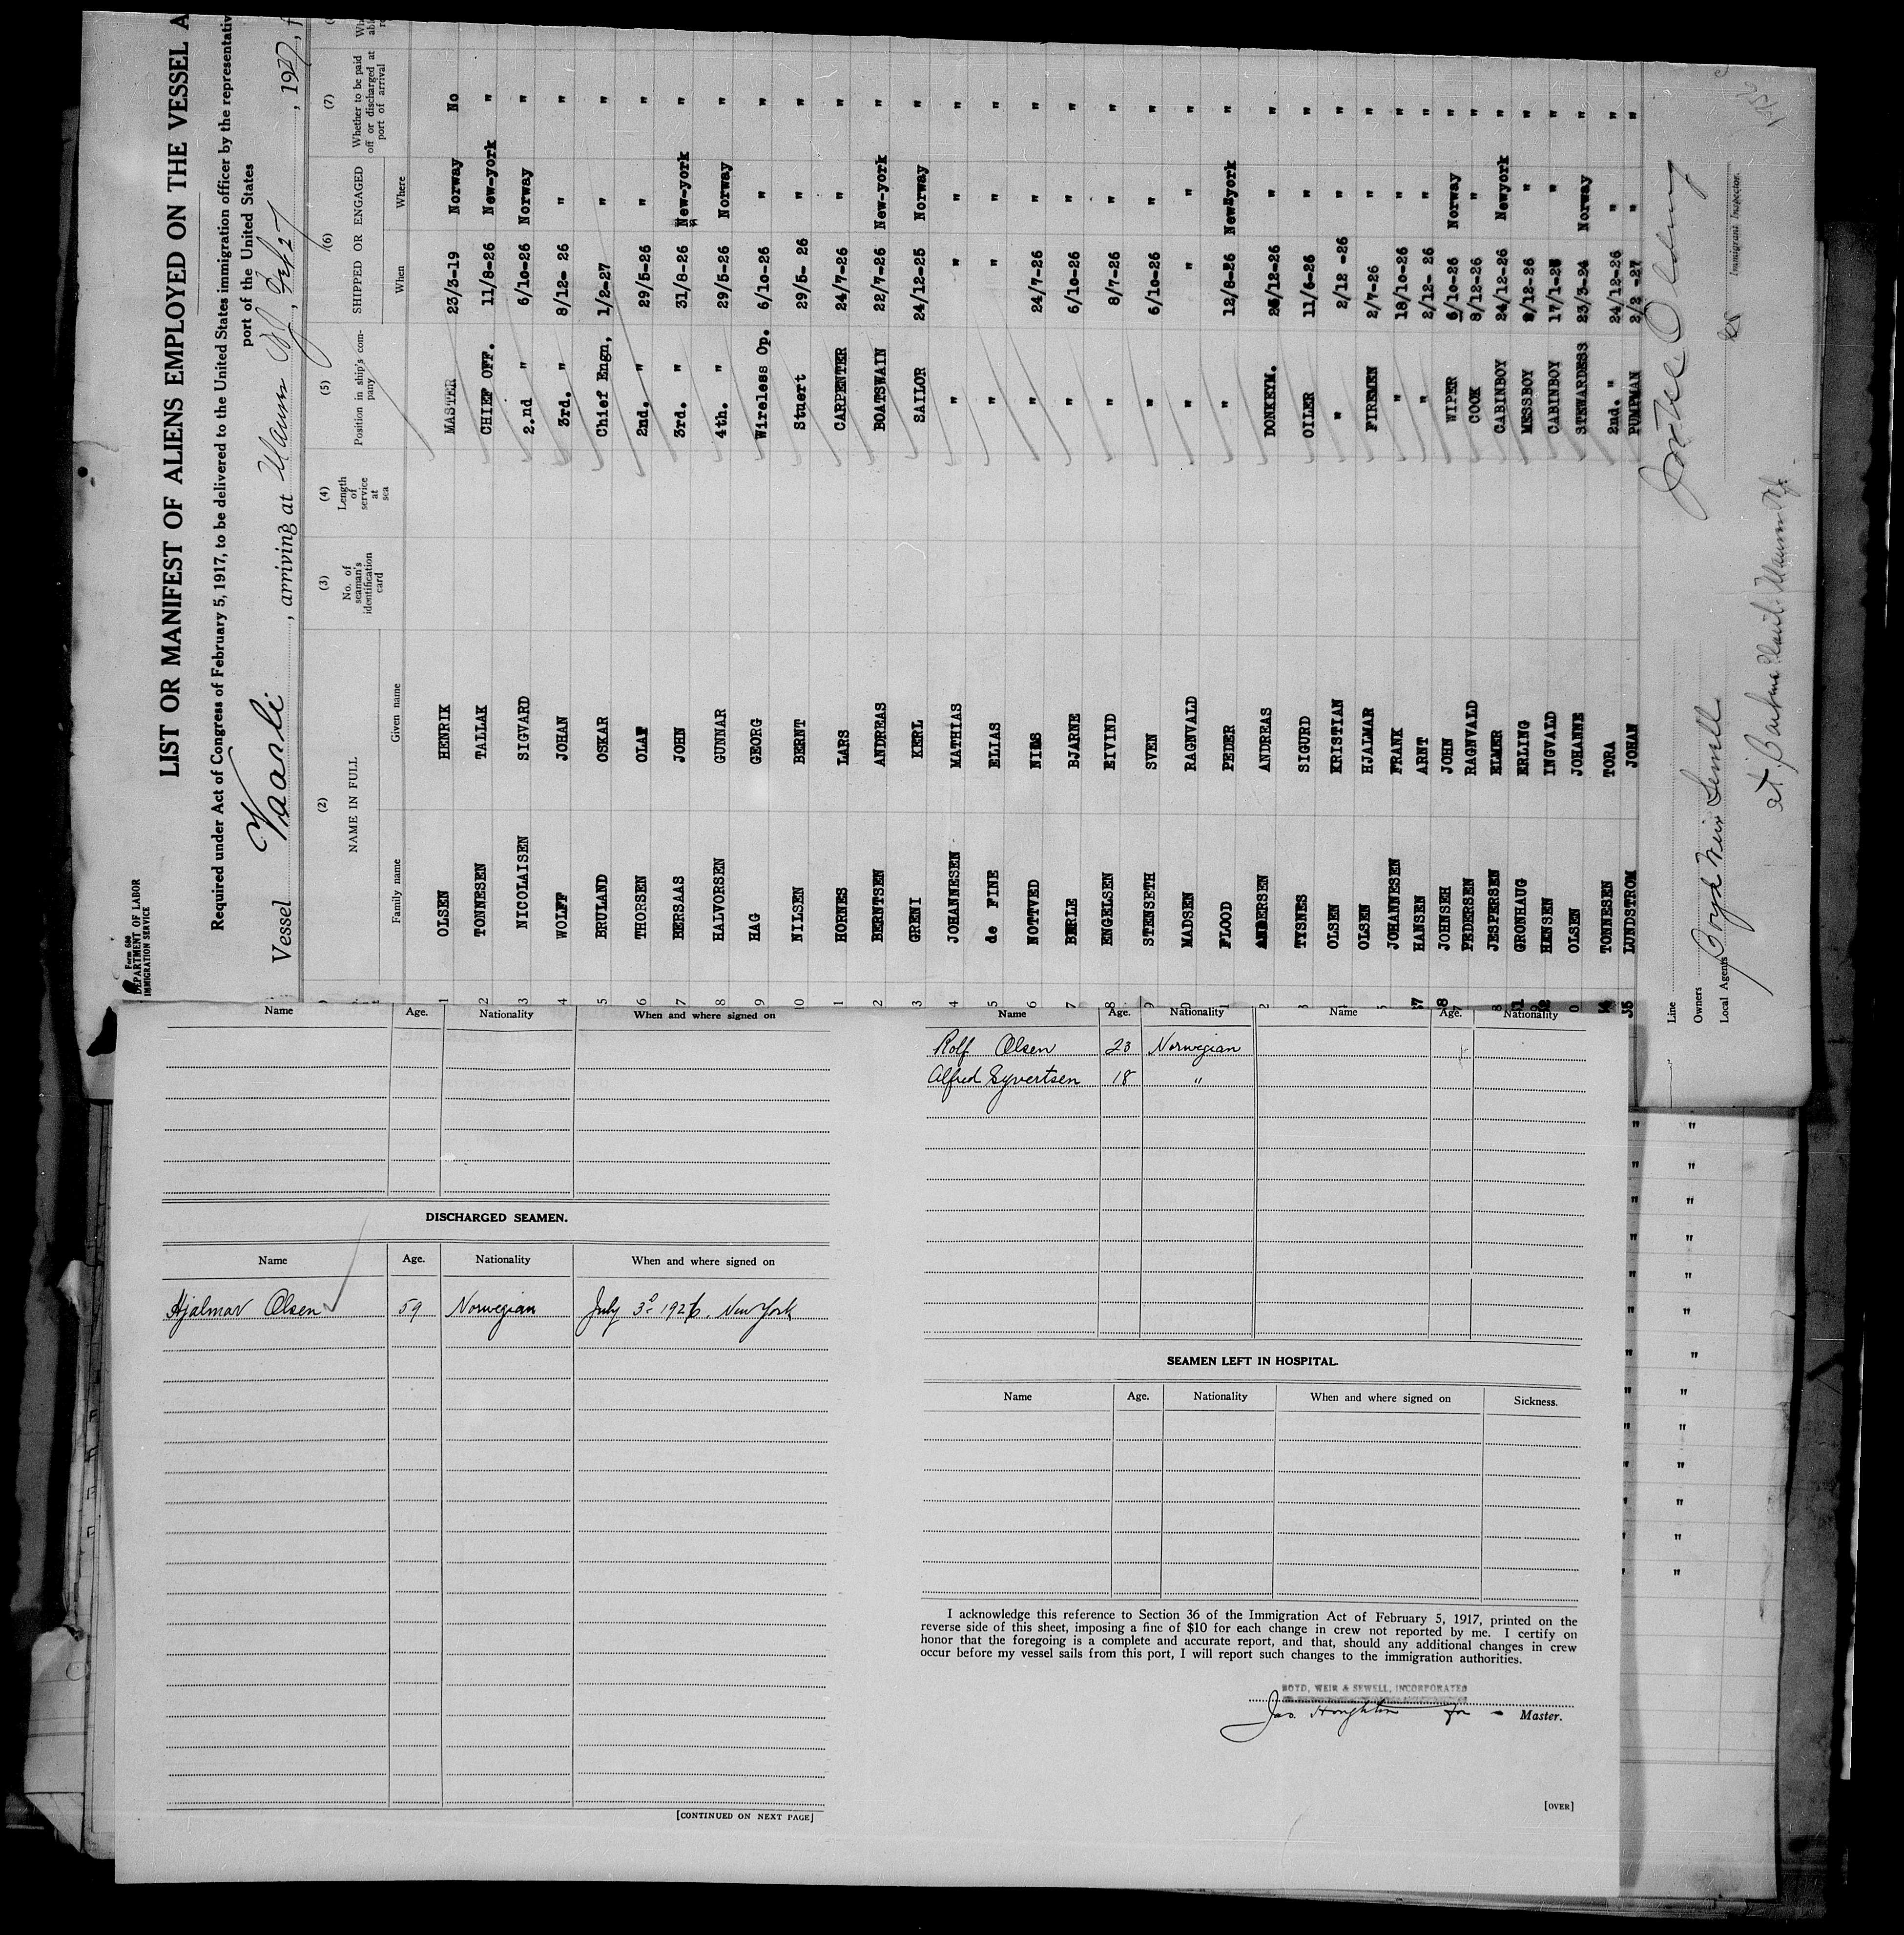 Form 680
DEPARTMENT OF LABOR
IMMIGRATION SERVICE
LIST OR MANIFEST OF ALIENS EMPLOYED ON THE VESSEL A
Required under Act of Congress of February 5, 1917, to be delivered to the United States immigration officer by the representativ
port of the United States
Vessel Vaarli, arriving at 1927, f
(2) (3) (4) (5) (6) (7)
NAME IN FULL No. of seaman's identification card Length of service at sea Position in ship's company SHIPPED OR ENGAGED Whether to be paid off or discharged at port of arrival
Family name Given name When Where
1 OLSEN HENRIK MASTER 23/3-19 Norway No
2 TONNESEN TALLAK CHIEF OFF. 11/8-26 New-york "
3 NICOLAISEN SIGVARD 2.nd " 6/10-26 Norway "
4 WOLFF JOHAN 3rd. " 8/12- 26 " "
5 BRULAND OSKAR Chief Engn, 1/2-27 " "
6 THORSEN OLAF 2nd. " 29/5-26 " "
7 BERSAAS JOHN 3rd. " 31/8-26 New-york "
8 HALVORSEN GUNNAR 4th. " 29/5-26 Norway "
9 HAG GEORG Wireless Op. 6/10-26 " "
10 NILSEN BERNT Stuert 29/5- 26 " "
1 HORNES LARS CARPENTER 24/7-26 " "
2 BERNTSEN ANDREAS BOATSWAIN 22/7-26 New-york "
3 GRENI KERL SAILOR 24/12-25 Norway "
4 JOHANNESEN MATHIAS " " " "
5 de FINE ELIAS " " "
6 NOTTVED NILS " 24/7-26 " "
7 BERLE BJARNE " 6/10-26 " "
8 ENGELSEN EIVIND " 8/7-26 " "
9 STENSETH SVEN " 6/10-26 " "
0 MADSEN RAGNVALD " " " "
1 FLOOD PEDER " 12/8-26 New-york "
2 ANDERSEN ANDREAS DONKEYM. 26/12-26 " "
3 TISNES SIGURD OILER 11/6-26 " "
4 OLSEN KRISTIAN " 2/12 -26 " "
5 OLSEN HJALMAR FIREMEN 2/7-26 " "
JOHANNESEN FRANK " 18/10-26 " "
7 HANSEN ARNT " 2/12- 26 " "
8 JOHNSEH JOHN WIPER 6/10-26 Norway "
PEDERSEN RAGNVALD COOK 8/12-26 " "
JESPERSEN ELMER CABINBOY 24/12-26 Newyork "
31 GRONHAUG ERLING MESSBOY 2/12-26 " "
32 HENSEN INGVALD CABINBOY 17/1-26 " "
OLSEN JOHANNE STEWARDESS 23/3-24 Norway "
34 TONNESEN TORA 2nd. " 24/12-26 " "
35 LUNDSTROM JOHAN PUMPMAN 2/2 -27 " "
Line
Owners
Local Agents Boyd Weir Sewell
Immigrant Inspector.
Name Age. Nationality When and where signed on
DISCHARGED SEAMEN.
Name Age. Nationality When and where signed on
Hjalmar Olsen 59 Norwegian July 3d 1926. New York
[CONTINUED ON NEXT PAGE]
Name Age. Nationality Name Age. Nationality
Rolf Olsen 23 Norwegian
Alfred Syvertsen 18 "
SEAMEN LEFT IN HOSPITAL.
Name Age. Nationality When and where signed on Sickness.
I acknowledge this reference to Section 36 of the Immigration Act of February 5, 1917, printed on the
reverse side of this sheet, imposing a fine of $10 for each change in crew not reported by me. I certify on
honor that the foregoing is a complete and accurate report, and that, should any additional changes in crew
occur before my vessel sails from this port, I will report such changes to the immigration authorities.
BOYD, WEIR & SEWELL, INCORPORATED
Jas. Houghton for Master.
[OVER]